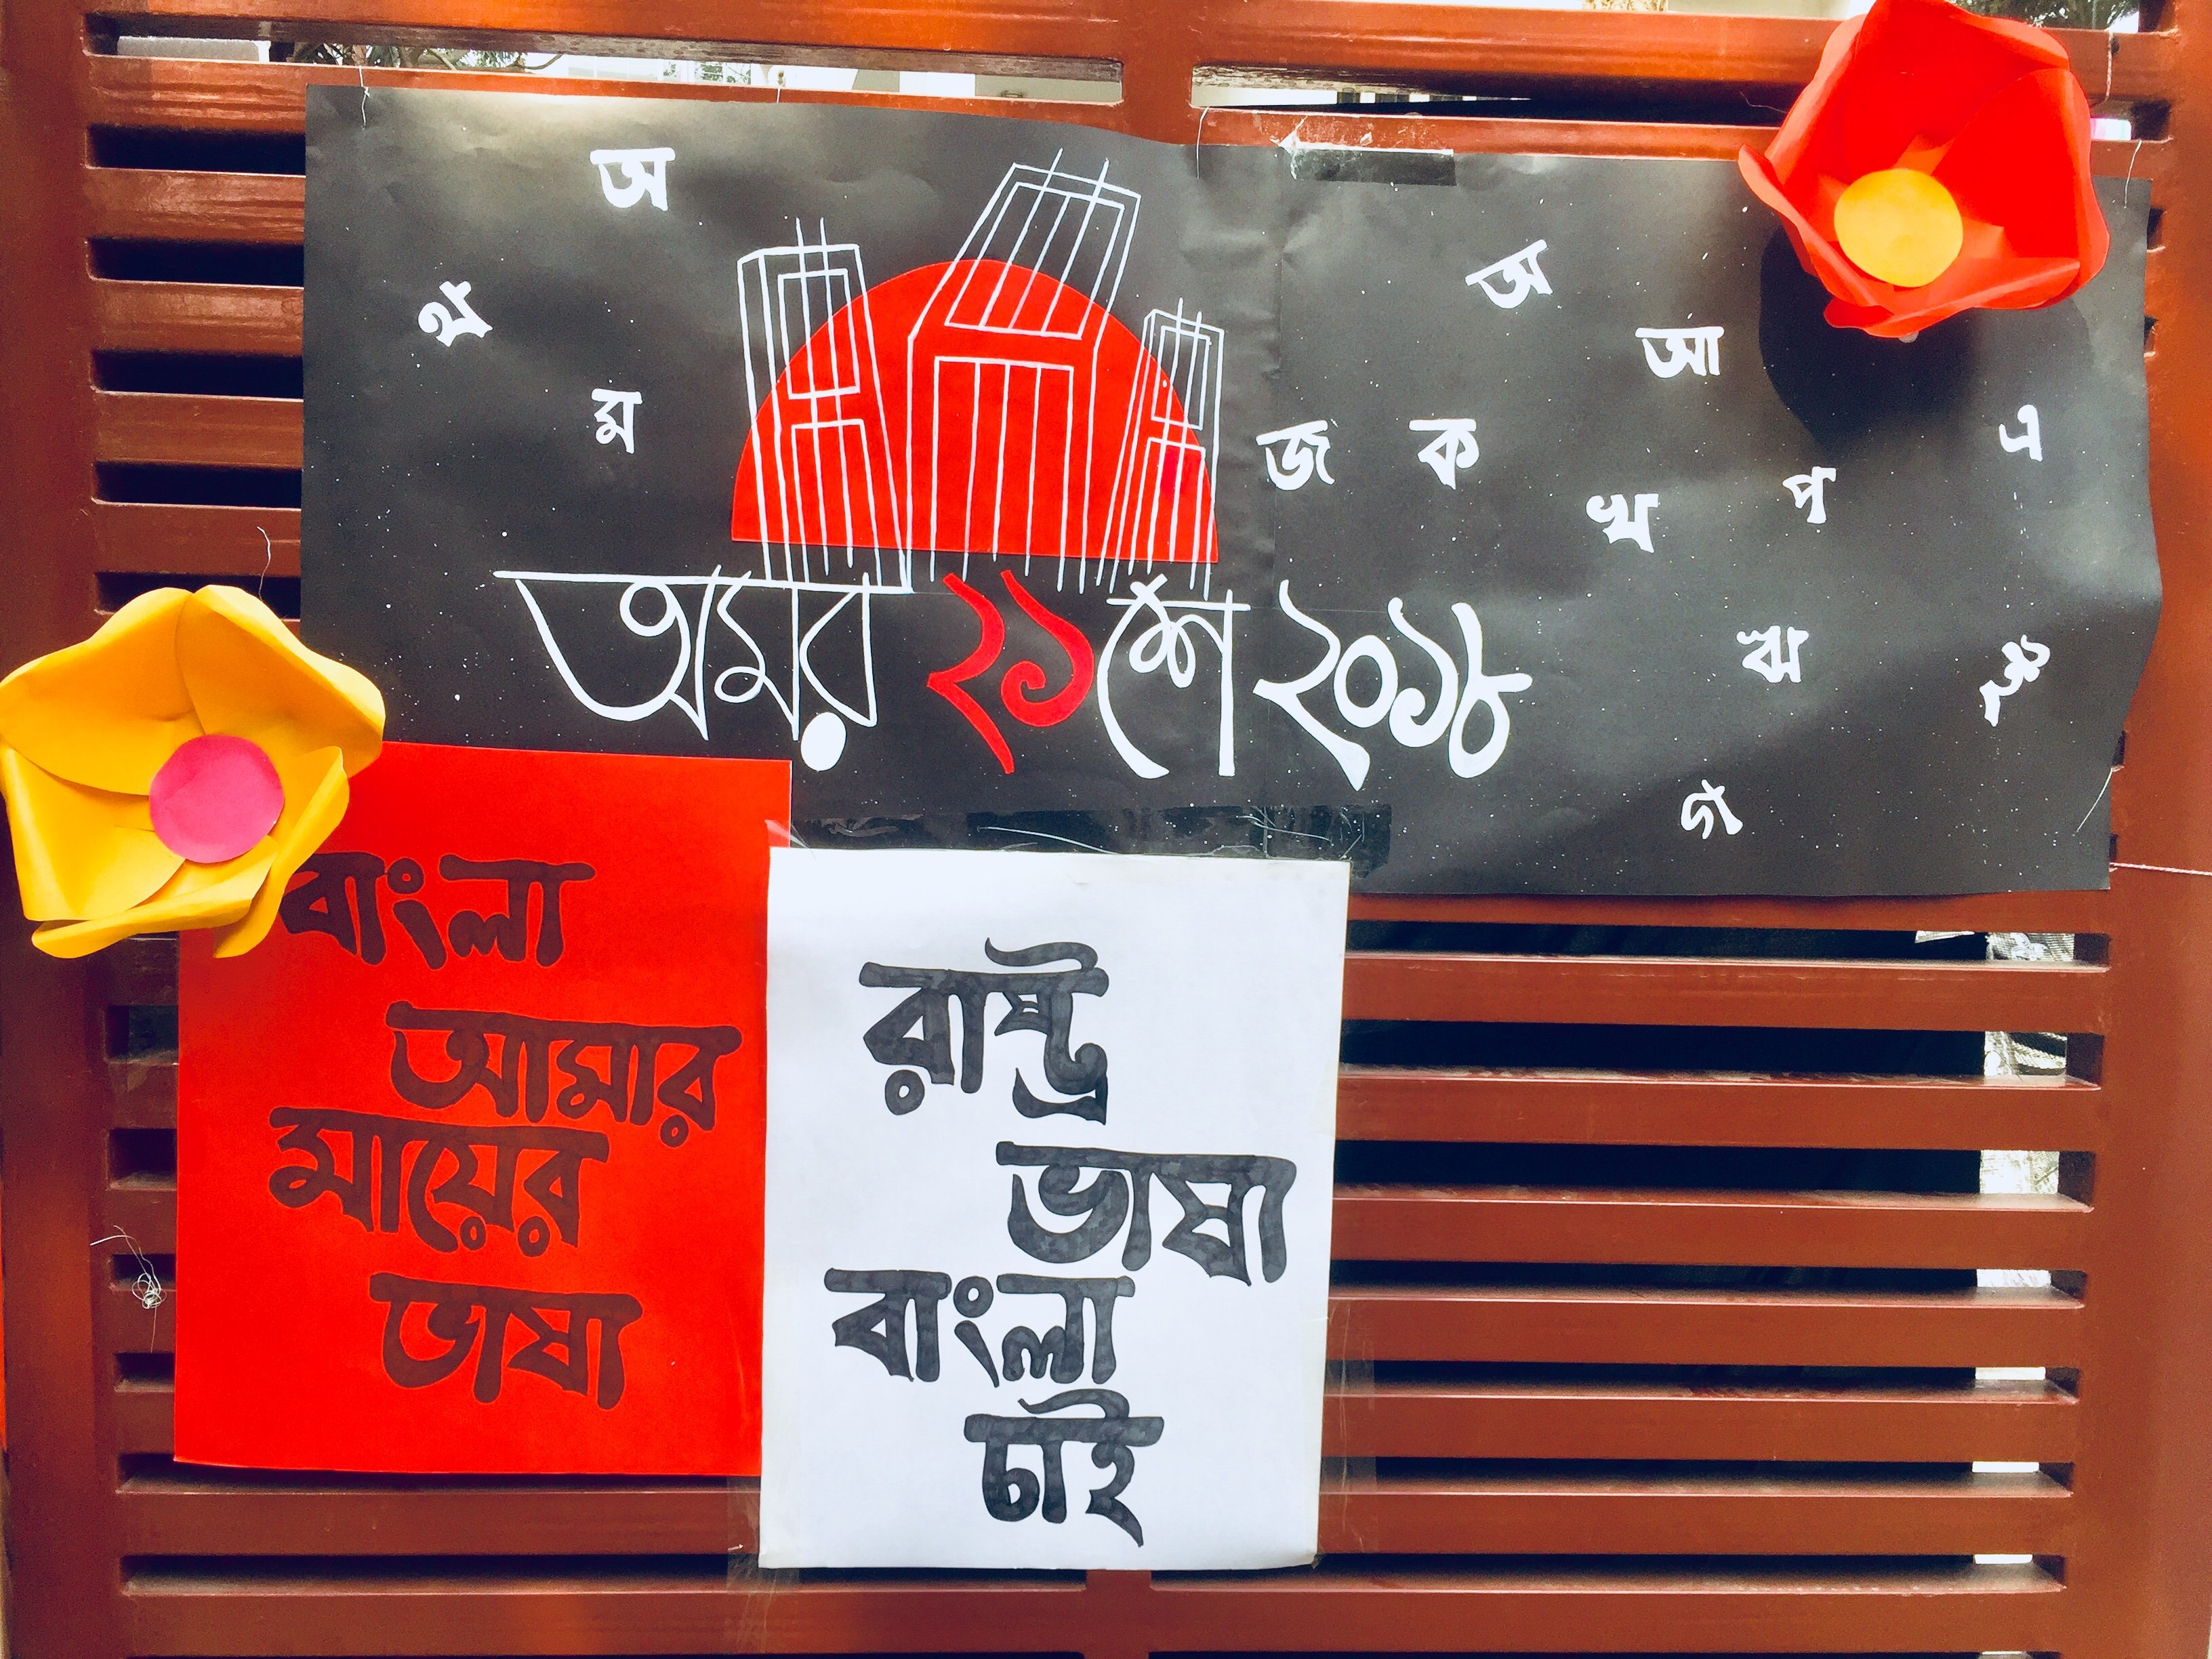 অ
থ
ম
অ
আ
জ ক
এ
খ প
ঋ
ঈ
গ
অমর ২১শে ২০১৮
বাংলা
আমার
মায়ের
ভাষা
রাষ্ট্র
ভাষা
বাংলা
চাই